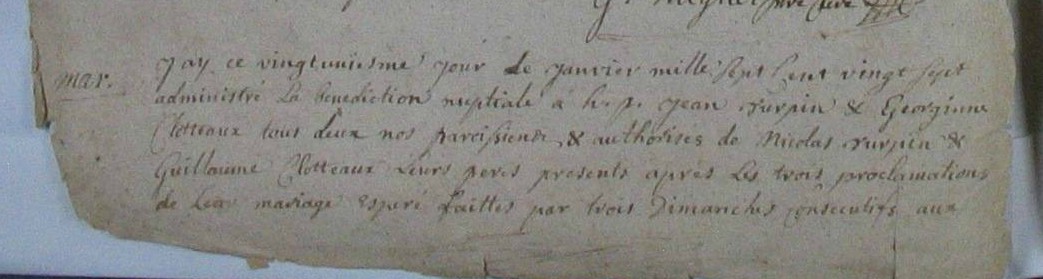 mar.
Jay ce vingtuniesme jour de Janvier mille sept cent vingt sept
administré La benediction nuptiale a h. p. Jean Turpin & Georginne
Clotteaux tous deux nos paroissiens & authorises de Nicolas Turpin &
Guillaume Clotteaux Leurs peres presents apres Les trois proclamations
de Leur mariage Esperé faittes par trois Dimanches consecutifs aux